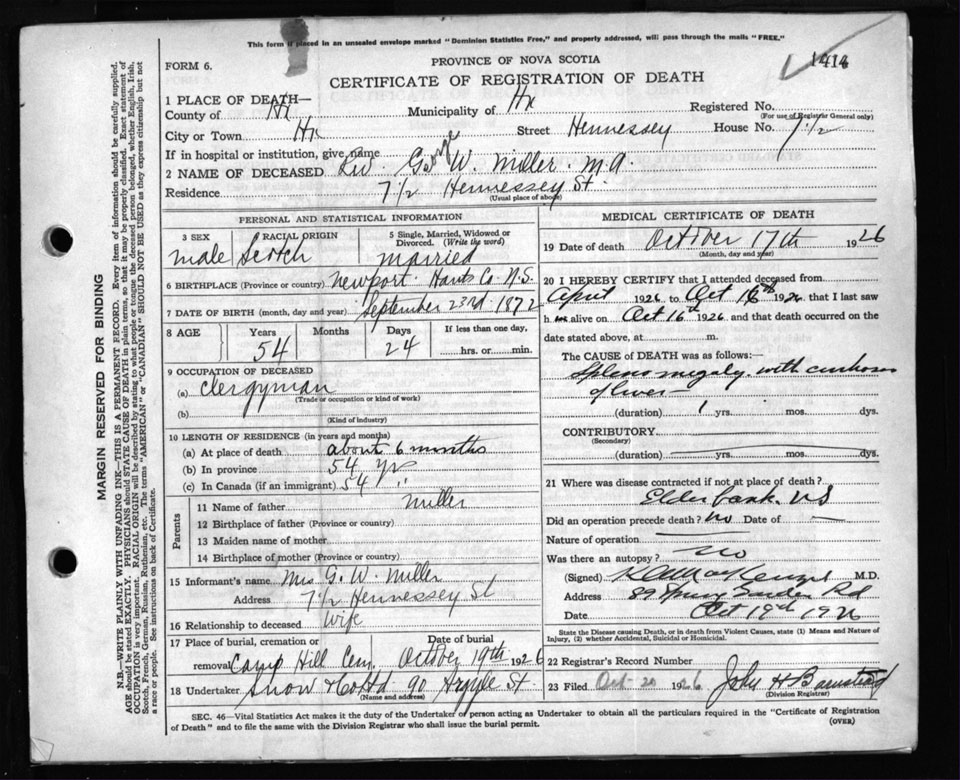 This form if placed in an unsealed envelope marked "Dominion Statistics Free," and properly addressed, will pass through the mails "FREE."
FORM 6.
PROVINCE OF NOVA SCOTIA
1414
CERTIFICATE OF REGISTRATION OF DEATH
1 PLACE OF DEATH—
County of Hx Municipality of Hx Registered No.
(For use of Registrar General only)
City or Town Hx Street Hennessey House No. 7 1/2
If in hospital or institution, give name
2 NAME OF DECEASED Rev George W. Miller. M.A
Residence 7 1/2 Hennessey St.
(Usual place of abode)
PERSONAL AND STATISTICAL INFORMATION
3 SEX male
RACIAL ORIGIN Scotch
5 Single, Married, Widowed or Divorced. (Write the word)
married
6 BIRTHPLACE (Province or country) Newport. Hants Co N.S.
7 DATE OF BIRTH (month, day and year) September 23rd 1872
8 AGE Years 54 Months Days 24 If less than one day, hrs. or min.
9 OCCUPATION OF DECEASED
(a) Clergyman
(Trade or occupation or kind of work)
(b)
(Kind of industry)
10 LENGTH OF RESIDENCE (in years and months)
(a) At place of death about 6 months
(b) In province 54 yrs
(c) In Canada (if an immigrant) 54 "
Parents
11 Name of father Miller
12 Birthplace of father (Province or country)
13 Maiden name of mother
14 Birthplace of mother (Province or country)
15 Informant's name Mrs G. W. Miller
Address 7 1/2 Hennessey St
16 Relationship to deceased Wife
17 Place of burial, cremation or removal Camp Hill Cem. Date of burial October 19th 1926
18 Undertaker Snow & Co Ltd 90 Argyle St.
(Name and address)
MEDICAL CERTIFICATE OF DEATH
19 Date of death October 17th 1926
(Month, day and year)
20 I HEREBY CERTIFY that I attended deceased from
April 1926 to Oct 16th 1926, that I last saw
him alive on Oct 16th 1926 and that death occurred on the
date stated above, at m.
The CAUSE OF DEATH was as follows:
Splenomegaly with cirrhosis
of liver
(duration) 1 yrs. mos. dys.
CONTRIBUTORY
(Secondary)
(duration) yrs. mos. dys.
21 Where was disease contracted if not at place of death?
Elderbank. NS
Did an operation precede death? no Date of —
Nature of operation
Was there an autopsy? No
(Signed) M.D.
Address 89 Spring Garden Rd
Date Oct 19th 1926
State the Disease causing Death, or in death from Violent Causes, state (1) Means and Nature of Injury, (2) whether Accidental, Suicidal or Homicidal.
22 Registrar's Record Number
23 Filed Oct 20 1926 John H Barnstead
(Division Registrar)
SEC. 46—Vital Statistics Act makes it the duty of the Undertaker or person acting as Undertaker to obtain all the particulars required in the "Certificate of Registration
of Death" and to file the same with the Division Registrar who shall issue the burial permit.
(OVER)
MARGIN RESERVED FOR BINDING
N.B.—WRITE PLAINLY WITH UNFADING INK—THIS IS A PERMANENT RECORD. Every item of information should be carefully supplied.
AGE should be stated EXACTLY. PHYSICIANS should STATE CAUSE OF DEATH in plain terms, so that it may be properly classified. Exact statement of
OCCUPATION is very important. RACIAL ORIGIN will be described by stating to what people or tongue the deceased person belonged, whether English, Irish,
Scotch, French, German, Russian, Ruthenian, etc. The terms "AMERICAN" or "CANADIAN" SHOULD NOT BE USED as they express citizenship but not
a race or people. See instructions on back of Certificate.